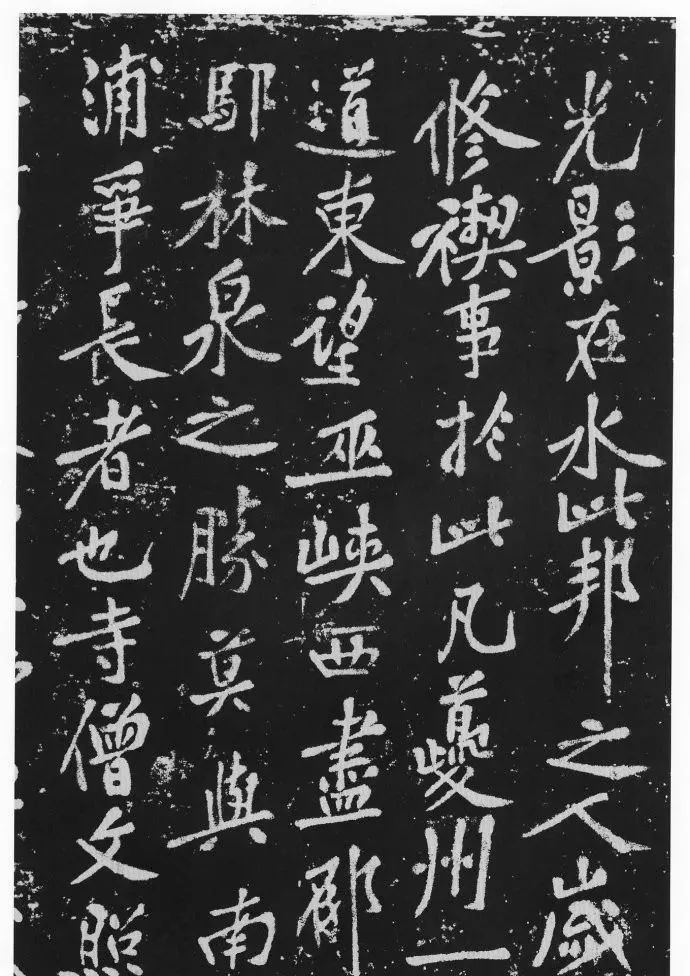 光影在水此邦之人歲
修禊事於此凡夔州一
道東望巫峽西盡郁
鄢林泉之勝莫與南
浦爭長者也寺僧文照